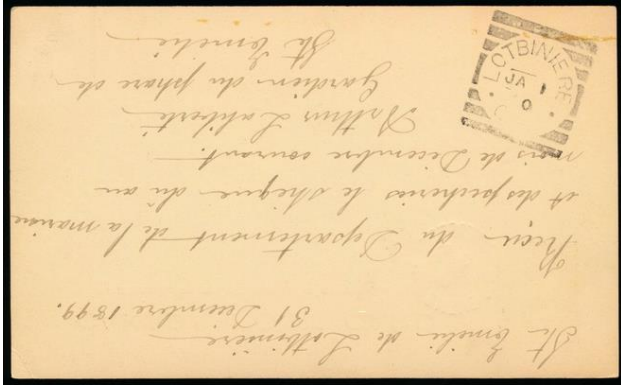 Ste Emélie de Lotbinière
31 Decembre 1899.
Reçu du Departement de la marine
et des pecheries le chèque dû au
mois de Décembre courant.
Arthur Laliberté
Gardien du phare de
Ste Emélie
LOTBINIERE
JA 1
0